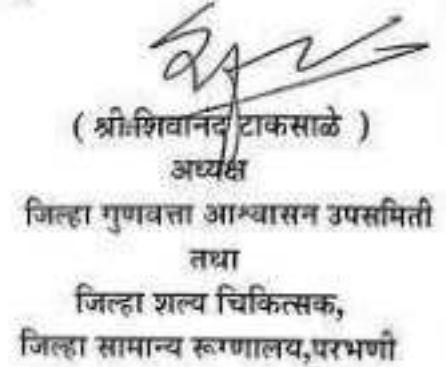 ( श्री.शिवानंद टाकसाळे )
अध्यक्ष
जिल्हा गुणवत्ता आश्वासन उपसमिती
तथा
जिल्हा शल्य चिकित्सक,
जिल्हा सामान्य रूग्णालय,परभणी